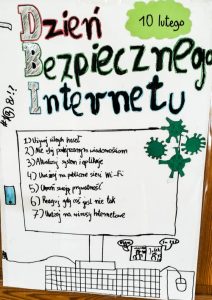 10 lutego
Dzień
Bezpiecznego
Internetu
1) Używaj silnych haseł
2) Nie ufaj podejrzanym wiadomościom
3) Aktualizuj system i aplikacje
4) Uważaj na publiczne sieci Wi-Fi
5) Chroń swoją prywatność
6) Reaguj, gdy coś jest nie tak
7) Uważaj na wirusy Internetowe